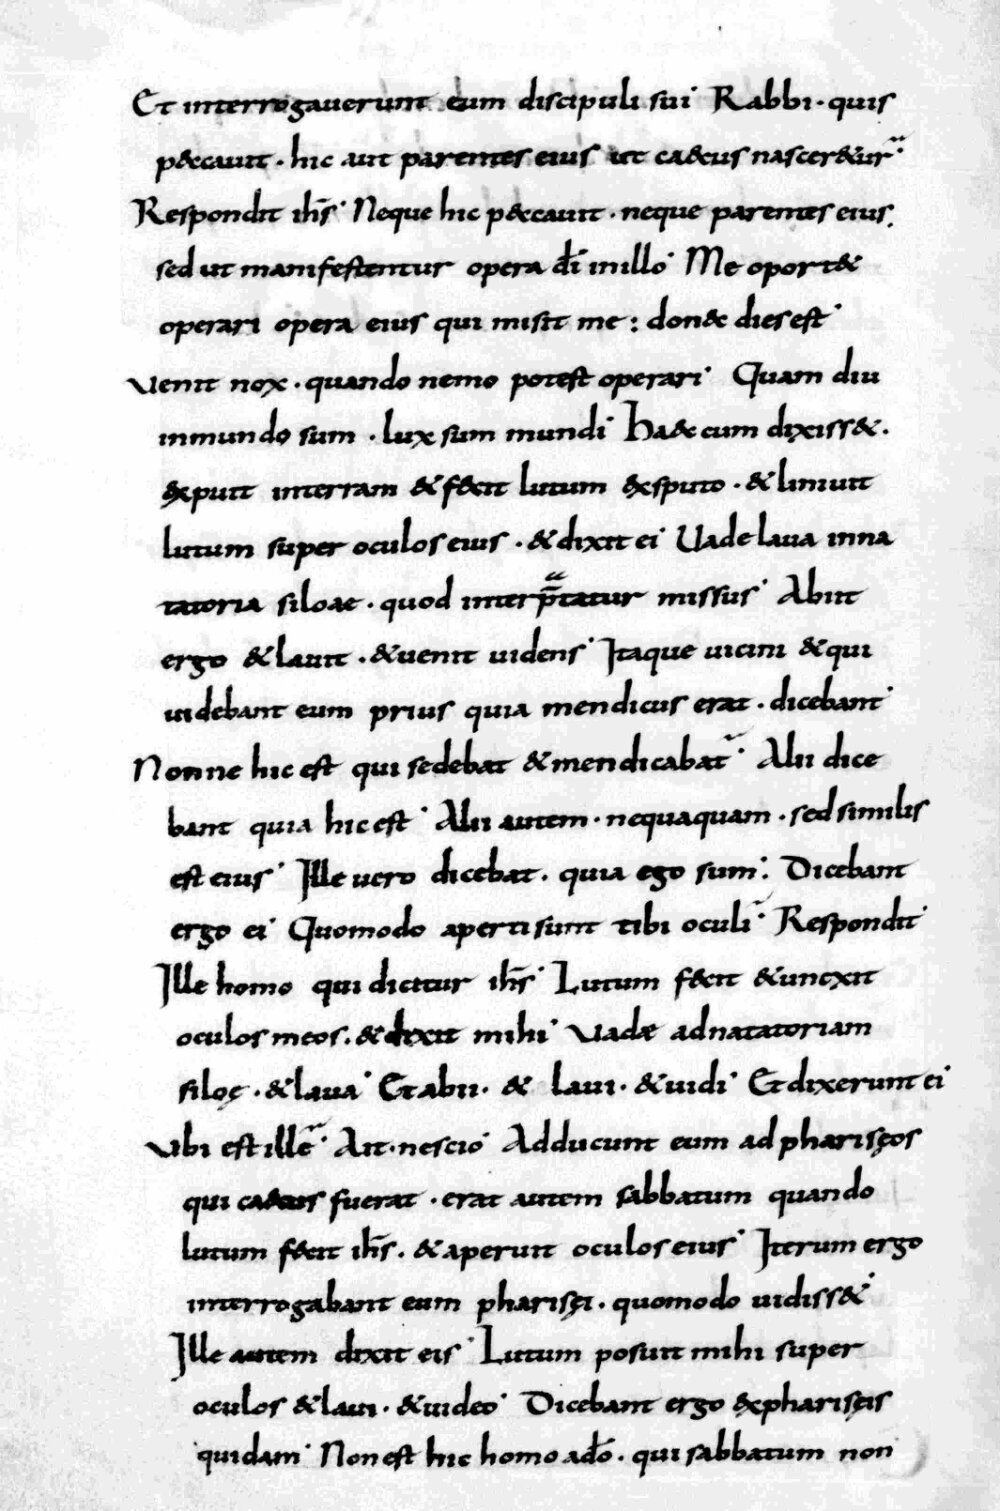 Et interrogauerunt eum discipuli sui Rabbi · quis
p&cauit · hic aut parentes eius ut ca&cus nascer&ur
Respondit ihs̄ Neque hic p&cauit · neque parentes eius.
sed ut manifestentur opera dī inillo Me oport&
operari opera eius qui misit me : don& dies est
Uenit nox · quando nemo potest operari Quam diu
inmundo sum · lux sum mundi Ha&c cum dixiss& ·
&xpuit interram & f&cit lutum &xsputo · & liniuit
lutum super oculos eius · & dixit ei Uade laua inna
tatoria siloae · quod interp̄tatur missus Abiit
ergo & lauit · & uenit uidens Itaque uicini & qui
uidebant eum prius quia mendicus erat · dicebant
Nonne hic est qui sedebat & mendicabat Alii dice
bant quia hic est Alii autem · nequaquam · sed similis
est eius Ille uero dicebat · quia ego sum Dicebant
ergo ei Quomodo aperti sunt tibi oculi Respondit
Ille homo qui dicitur ihs̄ Lutum f&cit & unxit
oculos meos · & dixit mihi Uadæ adnatatoriam
siloę · & laua Et abii · & laui · & uidi Et dixerunt ei
Ubi est ille Ait · nescio Adducunt eum ad pharisęos
qui ca&cus fuerat · erat autem sabbatum quando
lutum f&cit ihs̄ · & aperuit oculos eius Iterum ergo
interrogabant eum pharisęi · quomodo uidiss&
Ille autem dixit eis Lutum posuit mihi super
oculos & laui · & uideo Dicebant ergo &xpharisęis
quidam Non est hic homo adō · qui sabbatum non